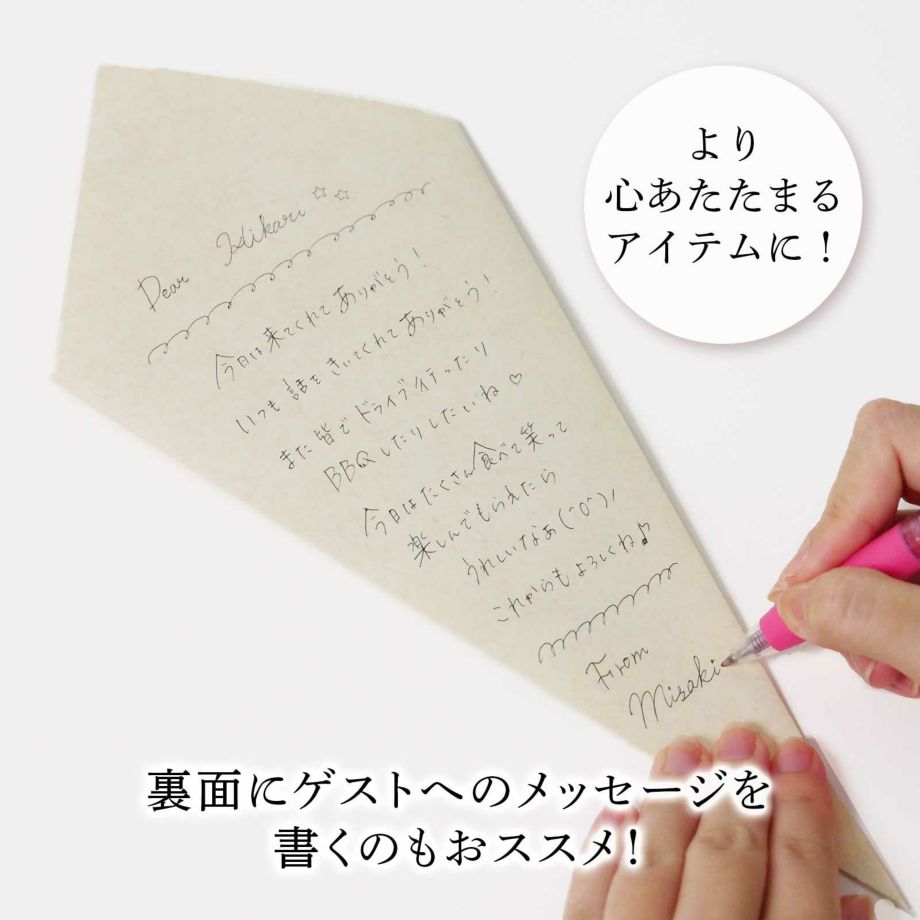 より
心あたたまる
アイテムに!
Dear Hikari☆☆
今日は来てくれてありがとう!
いつも話をきいてくれてありがとう!
また皆でドライブ行ったり
BBQしたりしたいね♡
今日はたくさん食べて笑って
楽しんでもらえたら
うれしいなぁ(^0^)/
これからもよろしくね♪
From
Misaki
裏面にゲストへのメッセージを
書くのもおススメ!